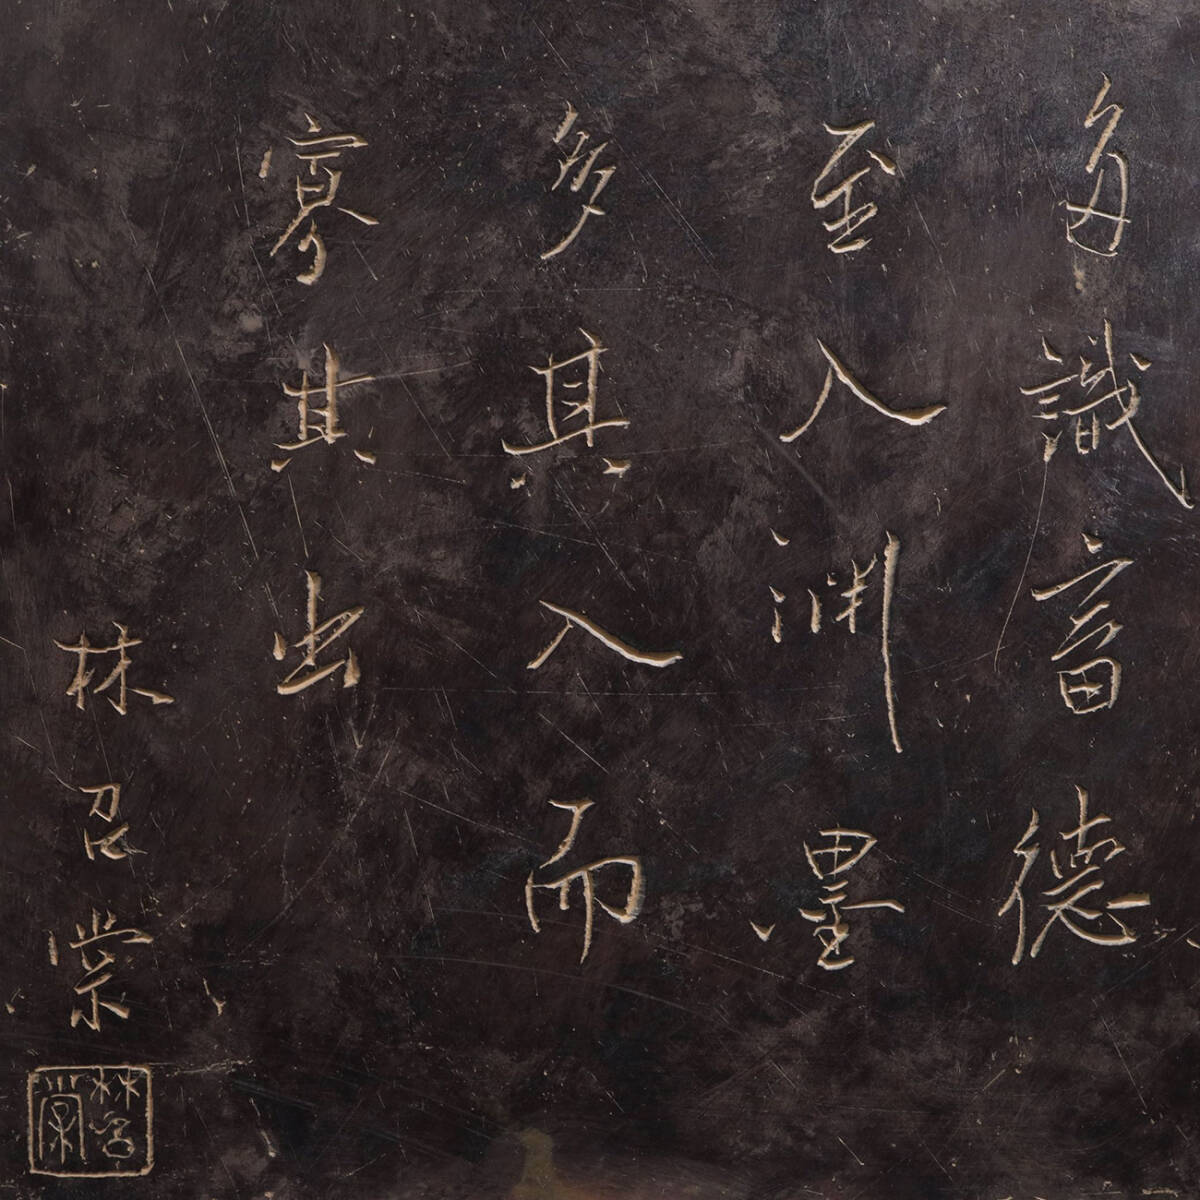 多識畜德
至人淵墨
多其入而
寡其出
林召棠
林召棠